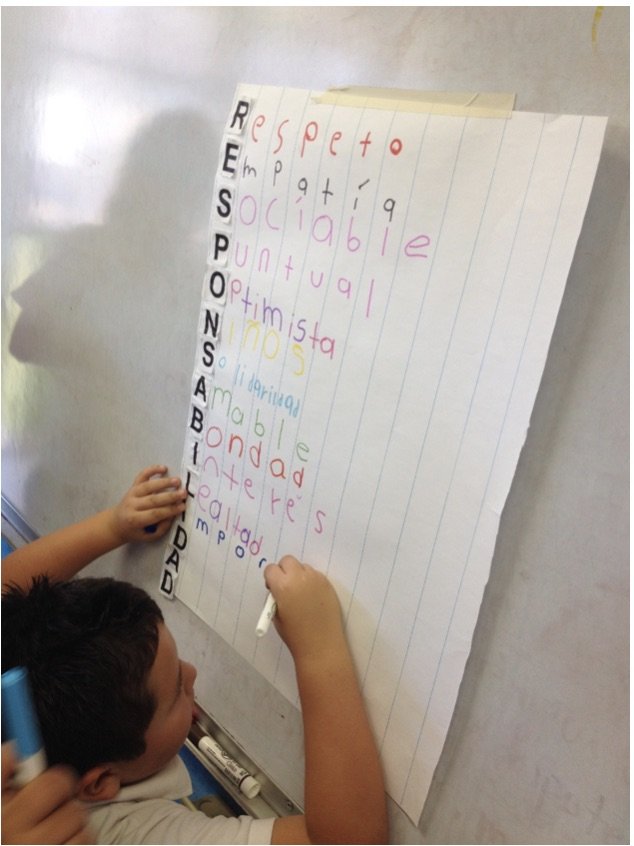 Respeto
Empatía
Sociable
Puntual
Optimista
Niños
Solidaridad
Amable
Bondad
Interés
Lealtad
Impor
D
A
D